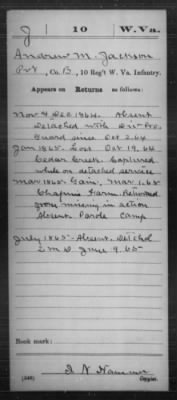 J | 10 | W.Va.
Andrew M. Jackson
Pvt, Co. B, 10 Reg't W. Va. Infantry.
Appears on Returns as follows:
Nov & Dec 1864. Absent
Detached with Div. Pro.
Guard since Oct 2.64
Jan 1865. Loss Oct 19, 64
Cedar Creek Captured
while on detached service
Mar 1865 Gain, Mar 1.65
Chapins Farm Returned
from missing in action
Absent Parole Camp
July 1865 - Absent.
2 M D June 9.65
Book mark:
(546)
Copyist.